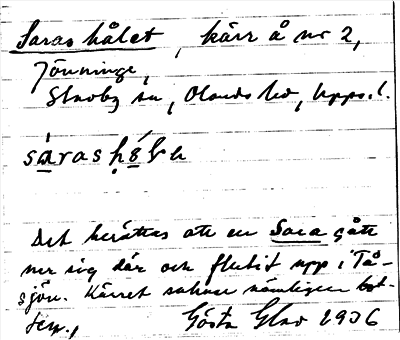 Saras hålet, kärr å nr 2,
Jönninge,
Stavby sn, Olands hd, Upps. l.
saras
Det berättas att en Sara gått
ner sig där och flutit upp i Tå-
sjön. Kärret saknar nämligen bot-
ten.,
Gösta Glad 1936